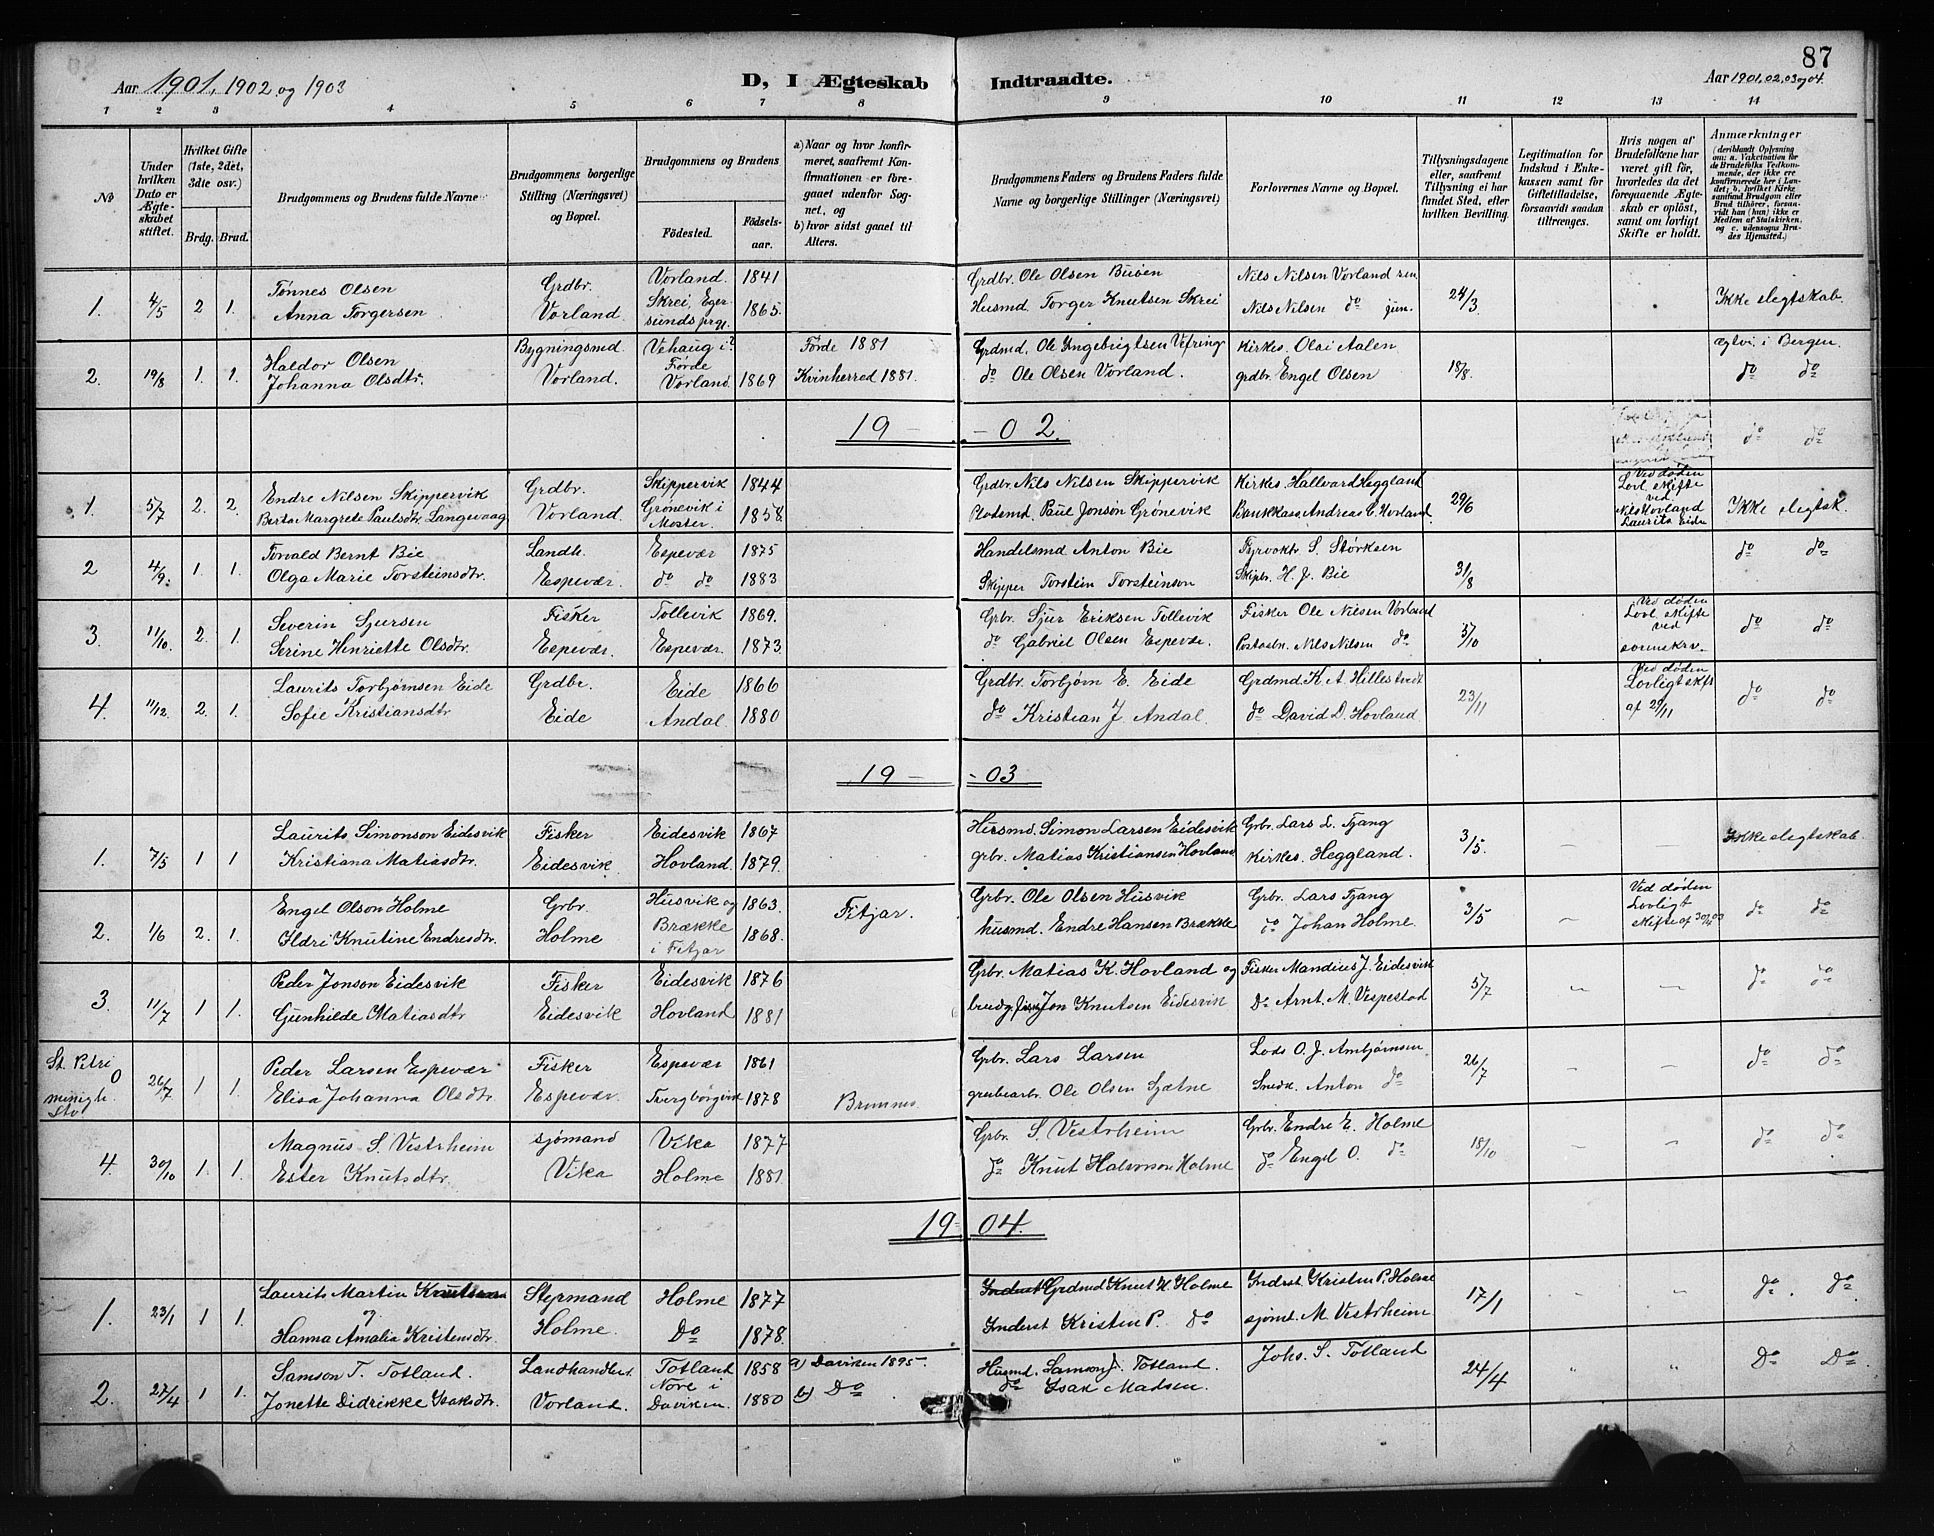 87
Aar 1901, 1902 og 1903
D, I Ægteskab Indtraadte.
Aar 1901, 02, 03 og 04.
1 2 3 4 5 6 7 8 9 10 11 12 13 14
No
Under hvilken Dato er Ægteskabet stiftet.
Hvilket Gifte (1ste, 2det, 3die osv.)
Brdg. Brud.
Brudgommens og Brudens fulde Navne
Brudgommens borgerlige Stilling (Næringsvei) og Bopæl.
Brudgommens og Brudens
Födested.
Födselsaar.
a) Naar og hvor konfirmeret, saafremt Konfirmationen er foregaaet udenfor Sognet, og
b) hvor sidst gaaet til Alters.
Brudgommens Faders og Brudens Faders fulde Navne og borgerlige Stillinger (Næringsvei)
Forlovernes Navne og Bopæl.
Tillysningsdagene eller, saafremt Tillysning ei har fundet Sted, efter hvilken Bevilling.
Legitimation for Indskud i Enkekassen samt for Giftetilladelse, forsaavidt saadan tiltrænges.
Hvis nogen af Brudefolkene har været gift för, hvorledes da det foregaaende Ægteskab er oplöst, samt om lovligt Skifte er holdt.
Anmærkninger (deriblandt Oplysning om: a. Vakcination for de Brudefolks Vedkommende, der ikke ere konfirmerede her i Landet; b. hvilket Kirkesamfund Brudgom eller Brud tilhörer, forsaavidt han (hun) ikke er Medlem af Statskirken, og c. udensogns Brudes Hjemsted.)
1. 4/5 2 1. Tønnes Olsen Grdbr. Vorland. 1841 Grdbr. Ole Olsen Buøen Nils Nilsen Vorland sen 24/3 Ikke slegtskab.
Anna Torgersen Vorland. Skrei, Egersunds prgj. 1865. Husmd. Torger Knutsen Skrei Nils Nilsen do jun.
2. 19/8 1. 1. Haldor Olsen Bygningsmd. Vehaug i Førde Førde 1881 Grdmd. Ole Yngebrigtsen Vefring Kirkes. Olai Aalen 18/8. i Bergen.
Johanna Olsdtr. Vorland. Vorland. 1869 Kvinherred 1881. do Ole Olsen Vorland. grdbr. Engel Olsen do do
19 - - 02. do do
1. 5/7 2. 2. Endre Nilsen Skippervik Grdbr. Skippervik 1844 Grdbr. Nils Nilsen Skippervik Kirkes. Hallvard Heggland 29/6 Ved døden Lovl. skifte ved. Nils Hovland Laurits Eide Ikke slegtsk.
Berta Margrete Paulsdtr. Langevaag Vorland. Grønevik i Moster. 1858. Paul Jonson Grønevik Bankkass. Andreas C. Hovland.
2 4/9. 1. 1. Torvald Bernt Bie Landh. Espevær 1875 Handelsmd Anton Bie Fyrvoktr. S. Størksen 31/8 do do
Olga Marie Torsteinsdtr. Espevær. do do 1883 Skipper Torstein Torsteinson Skipbr. H. J. Bie
3 11/10. 2. 1. Severin Sjursen Fisker Tollevik 1869. Grbr. Sjur Eriksen Tollevik Fisker Ole Nilsen Vorland 5/10 Ved døden Lovl. skifte ved do do
Serine Henriette Olsdtr. Espevær. Espevær. 1873. do Gabriel Olsen Espevær. Nils Nilsen do
4. 11/12. 2. 1. Laurits Torbjørnsen Eide Grdbr. Eide 1866 Grdbr. Torbjørn E. Eide Grdmd. K. A. Hillestvedt 23/11 Ved døden Lovligt skft af 29/11 do do
Sofie Kristiansdtr. Eide Andal 1880 do Kristian J Andal. do David D. Hovland.
19 - - 03
1. 7/5 1 1 Laurits Simonson Eidesvik Fisker Eidesvik 1867 Husmd. Simon Larsen Eidesvik Grbr. Lars L. Tjang 3/5. Ikke slegtskab.
Kristiana Matiasdtr. Eidesvik. Hovland. 1879. grbr. Matias Kristiansen Hovland Kirkes. Heggland.
2. 1/6 2. 1. Engel Olson Holme Grbr. Husvik og 1863. Fitjar. Grbr. Ole Olsen Husvik Grbr. Lars Tjang 3/5 Ved døden Lovligt skifte af do do
Ildri Knutine Endresdtr. Holme Brække i Fitjar 1868. husmd. Endre Hansen Brække do Johan Holme.
3. 11/7 1 1. Peder Jonson Eidesvik Fisker Eidesvik 1876 Grbr. Matias K. Hovland og Fisker Mandius J. Eidesvik 5/7 do do
Gunhilde Matiasdtr Eidesvik Hovland 1881 brudg. Jon Knutsen Eidesvik Do Arnt. M. Vespestad
St. Petri menigh. 26/7 1 1. Peder Larsen Espevær Fisker Espevær 1861 Grbr. Lars Larsen Lods O. J. Ambjørnsen 26/7 do do
Elisa Johanna Olsdtr. Espevær. 1878 Bremnes. Ole Olsen Sjætne Snedk. Anton do
4. 30/10 1. 1. Magnus S. Vestrheim sjømand Vika 1877 Grbr. S. Vestrheim Grbr. Endre E. Holme 18/10 do do
Ester Knutsdtr. Vika Holme 1881. do Knut Halvorson Holme do Engel O. do
19 - 04.
1. 23/1 1 1. Laurits Martin Knutson Styrmand Holme 1877 Grdmd Knut H. Holme Inderst. Kristen P. Holme 17/1 do. do.
Hanna Amalia Kristensdtr. Holme. Do 1878. Inderst Kristen P. do sjømd. M. Vestrheim
2. 27/4 1 1. Samson T. Totland. Landhandler Totland 1858 a) Daviken 1895. Husmd. Samson J. Totland. Johs. S. Totland 24/4 Do Do.
Jonette Didrikke Isaksdtr. Vorland. Nore i Daviken. 1880 b) Do do Isak Madsen.